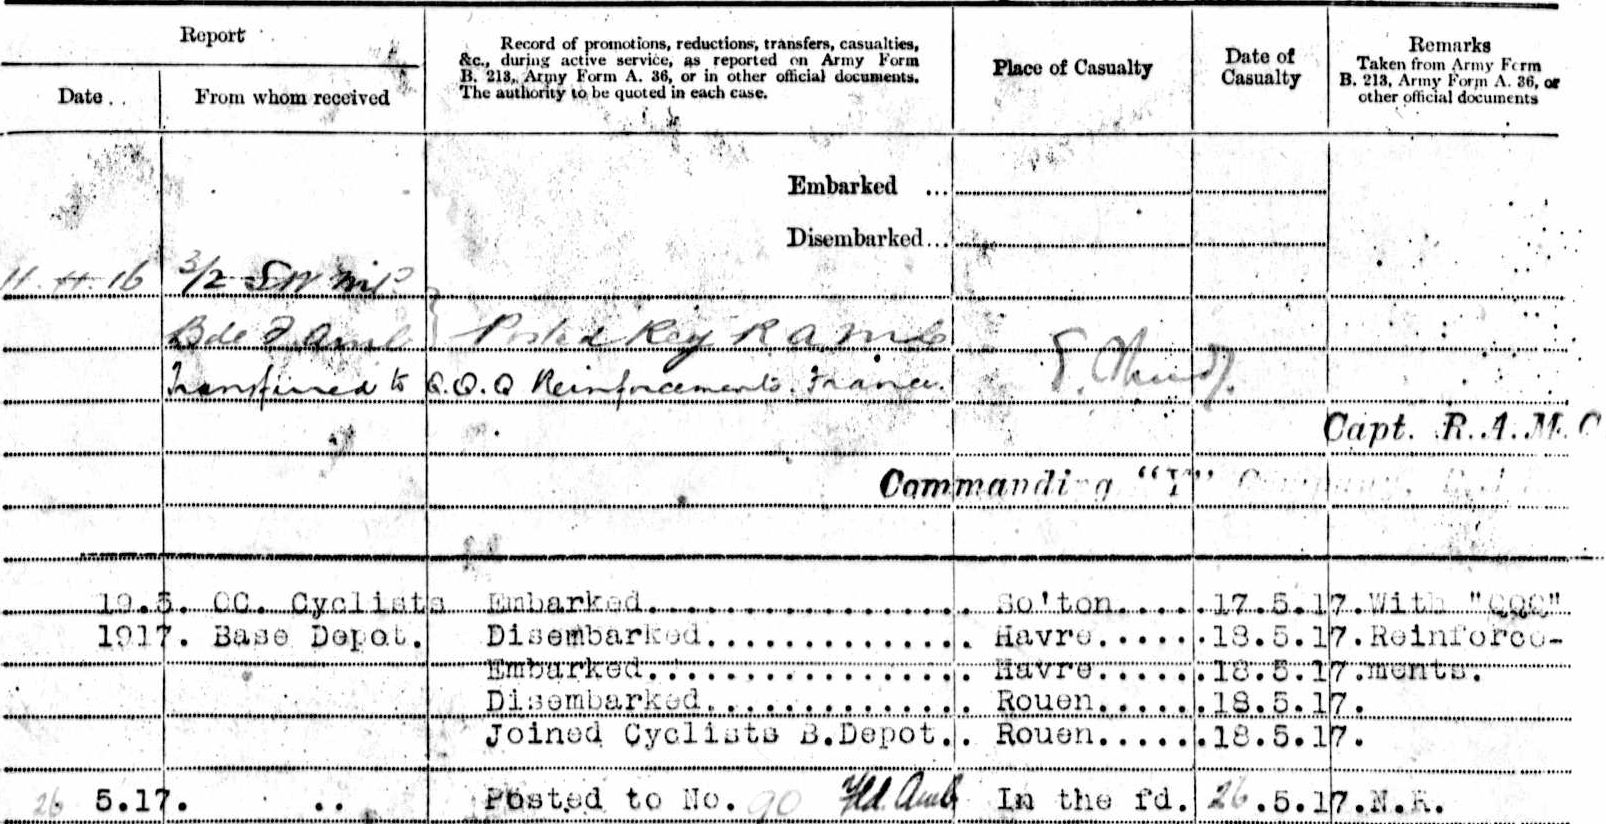 Report
Record of promotions, reductions, transfers, casualties,
&c., during active service, as reported on Army Form
B. 213, Army Form A. 36, or in other official documents.
The authority to be quoted in each case.
Place of Casualty
Date of
Casualty
Remarks
Taken from Army Form
B. 213, Army Form A. 36, or
other official documents
Date
From whom received
Embarked ...
Disembarked...
3/2 S W
Bde F. Amb Posted R A M C
Transferred to Q.Q.Q Reinforcements. France.
Capt. R.A.M.C
Commanding "Y" Company,
19.5. OC. Cyclists Embarked.................. So'ton..... 17.5.17. With "QQQ"
1917. Base Depot. Disembarked.............. Havre...... 18.5.17. Reinforce-
Embarked.................. Havre...... 18.5.17. ments.
Disembarked.............. Rouen...... 18.5.17.
Joined Cyclists B.Depot.. Rouen...... 18.5.17.
26 5.17. .. Posted to No. 90 Fld. Amb In the fd. 26.5.17. N.R.